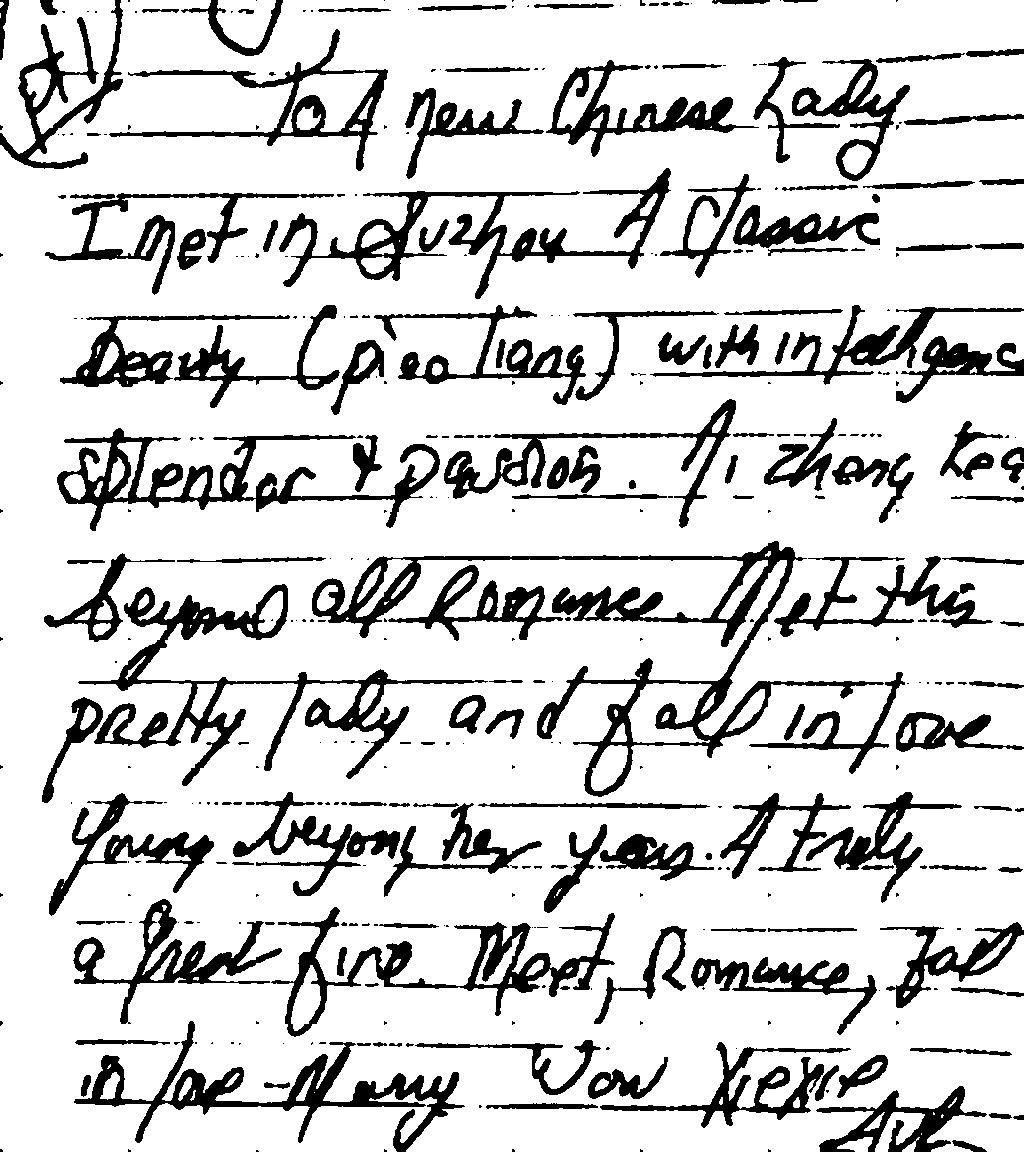 To A New Chinese Lady
I met in Suzhou A Classic
beauty (piao liang) with intelligenc
splendor & passion. Ai zheng
beyond all Romance. Met this
pretty lady and fall in love
young beyond her years. A truly
a great find. Meet, Romance, fall
in love - Marry Wow Xiexie